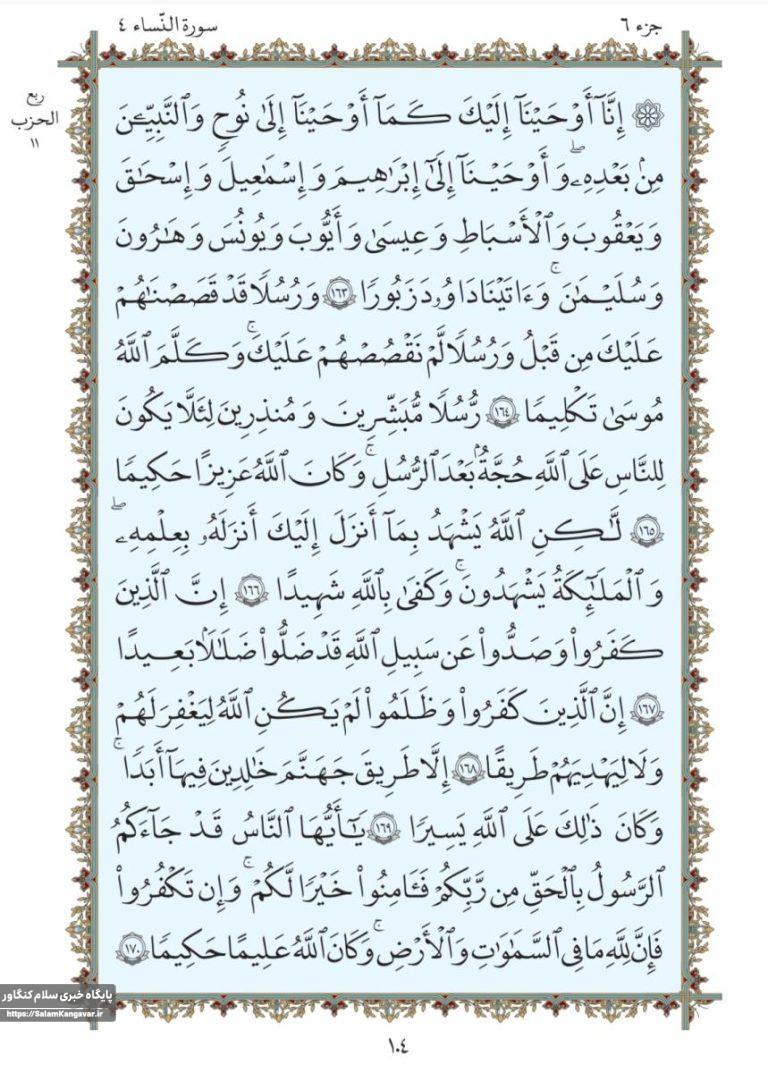 جزء ٦
سورة النّساء ٤
ربع
الحزب
١١
۞ إِنَّآ أَوْحَيْنَآ إِلَيْكَ كَمَآ أَوْحَيْنَآ إِلَىٰ نُوحٍ وَٱلنَّبِيِّۦنَ
مِنۢ بَعْدِهِۦۖ وَأَوْحَيْنَآ إِلَىٰٓ إِبْرَٰهِيمَ وَإِسْمَٰعِيلَ وَإِسْحَٰقَ
وَيَعْقُوبَ وَٱلْأَسْبَاطِ وَعِيسَىٰ وَأَيُّوبَ وَيُونُسَ وَهَٰرُونَ
وَسُلَيْمَٰنَۚ وَءَاتَيْنَا دَاوُۥدَ زَبُورًا ١٦٣ وَرُسُلًا قَدْ قَصَصْنَٰهُمْ
عَلَيْكَ مِن قَبْلُ وَرُسُلًا لَّمْ نَقْصُصْهُمْ عَلَيْكَۚ وَكَلَّمَ ٱللَّهُ
مُوسَىٰ تَكْلِيمًا ١٦٤ رُّسُلًا مُّبَشِّرِينَ وَمُنذِرِينَ لِئَلَّا يَكُونَ
لِلنَّاسِ عَلَى ٱللَّهِ حُجَّةٌۢ بَعْدَ ٱلرُّسُلِۚ وَكَانَ ٱللَّهُ عَزِيزًا حَكِيمًا
١٦٥ لَّٰكِنِ ٱللَّهُ يَشْهَدُ بِمَآ أَنزَلَ إِلَيْكَ أَنزَلَهُۥ بِعِلْمِهِۦۖ
وَٱلْمَلَٰٓئِكَةُ يَشْهَدُونَۚ وَكَفَىٰ بِٱللَّهِ شَهِيدًا ١٦٦ إِنَّ ٱلَّذِينَ
كَفَرُوا۟ وَصَدُّوا۟ عَن سَبِيلِ ٱللَّهِ قَدْ ضَلُّوا۟ ضَلَٰلًۢا بَعِيدًا
١٦٧ إِنَّ ٱلَّذِينَ كَفَرُوا۟ وَظَلَمُوا۟ لَمْ يَكُنِ ٱللَّهُ لِيَغْفِرَ لَهُمْ
وَلَا لِيَهْدِيَهُمْ طَرِيقًا ١٦٨ إِلَّا طَرِيقَ جَهَنَّمَ خَٰلِدِينَ فِيهَآ أَبَدًاۚ
وَكَانَ ذَٰلِكَ عَلَى ٱللَّهِ يَسِيرًا ١٦٩ يَٰٓأَيُّهَا ٱلنَّاسُ قَدْ جَآءَكُمُ
ٱلرَّسُولُ بِٱلْحَقِّ مِن رَّبِّكُمْ فَـَٔامِنُوا۟ خَيْرًا لَّكُمْۚ وَإِن تَكْفُرُوا۟
فَإِنَّ لِلَّهِ مَا فِى ٱلسَّمَٰوَٰتِ وَٱلْأَرْضِۚ وَكَانَ ٱللَّهُ عَلِيمًا حَكِيمًا ١٧٠
پایگاه خبری سلام کنگاور
https://SalamKangavar.ir
١٠٤